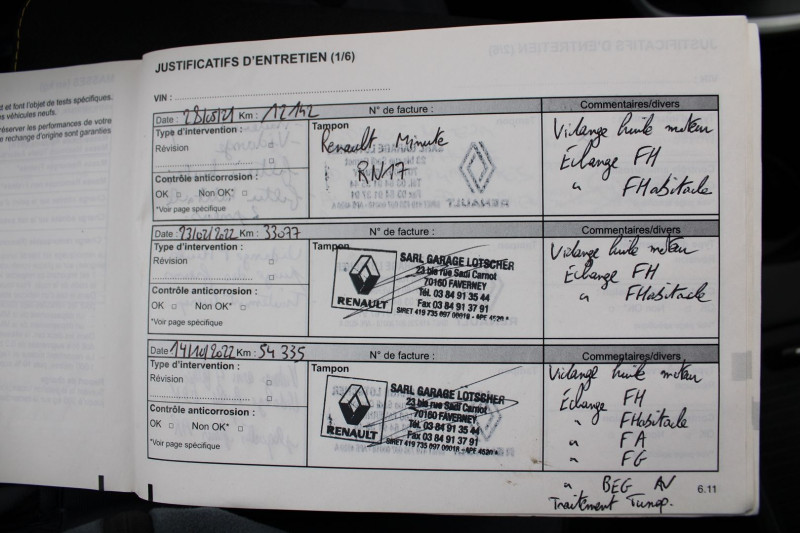 t et font l'objet de tests spécifiques.
os véhicules neufs.
réserver les performances de votre
rechange d'origine sont garanties
JUSTIFICATIFS D'ENTRETIEN (1/6)
VIN :
Date : 28/05/21 Km : 12142 N° de facture : Commentaires/divers
Type d'intervention :
Révision
Contrôle anticorrosion :
OK Non OK*
*Voir page spécifique
Tampon
Renault Minute
RN17
RENAULT
Vidange huile moteur
Échange FH
" FHabitacle
Date : 23/02/2022 Km : 33077 N° de facture : Commentaires/divers
Type d'intervention :
Révision
Contrôle anticorrosion :
OK Non OK*
*Voir page spécifique
Tampon
RENAULT
SARL GARAGE LOTSCHER
23 bis rue Sadi Carnot
70160 FAVERNEY
Tél. 03 84 91 35 44
Fax 03 84 91 37 91
SIRET 419 735 097 00018 - APE 4520 A
Vidange huile moteur
Échange FH
" FHabitacle
Date : 14/10/2022 Km : 54 335 N° de facture : Commentaires/divers
Type d'intervention :
Révision
Contrôle anticorrosion :
OK Non OK*
*Voir page spécifique
Tampon
RENAULT
SARL GARAGE LOTSCHER
23 bis rue Sadi Carnot
70160 FAVERNEY
Tél. 03 84 91 35 44
Fax 03 84 91 37 91
SIRET 419 735 097 00018 - APE 4520 A
Vidange huile moteur
Échange FH
" FHabitacle
" FA
" FG
" BEG AV
Traitement Tunap.
6.11